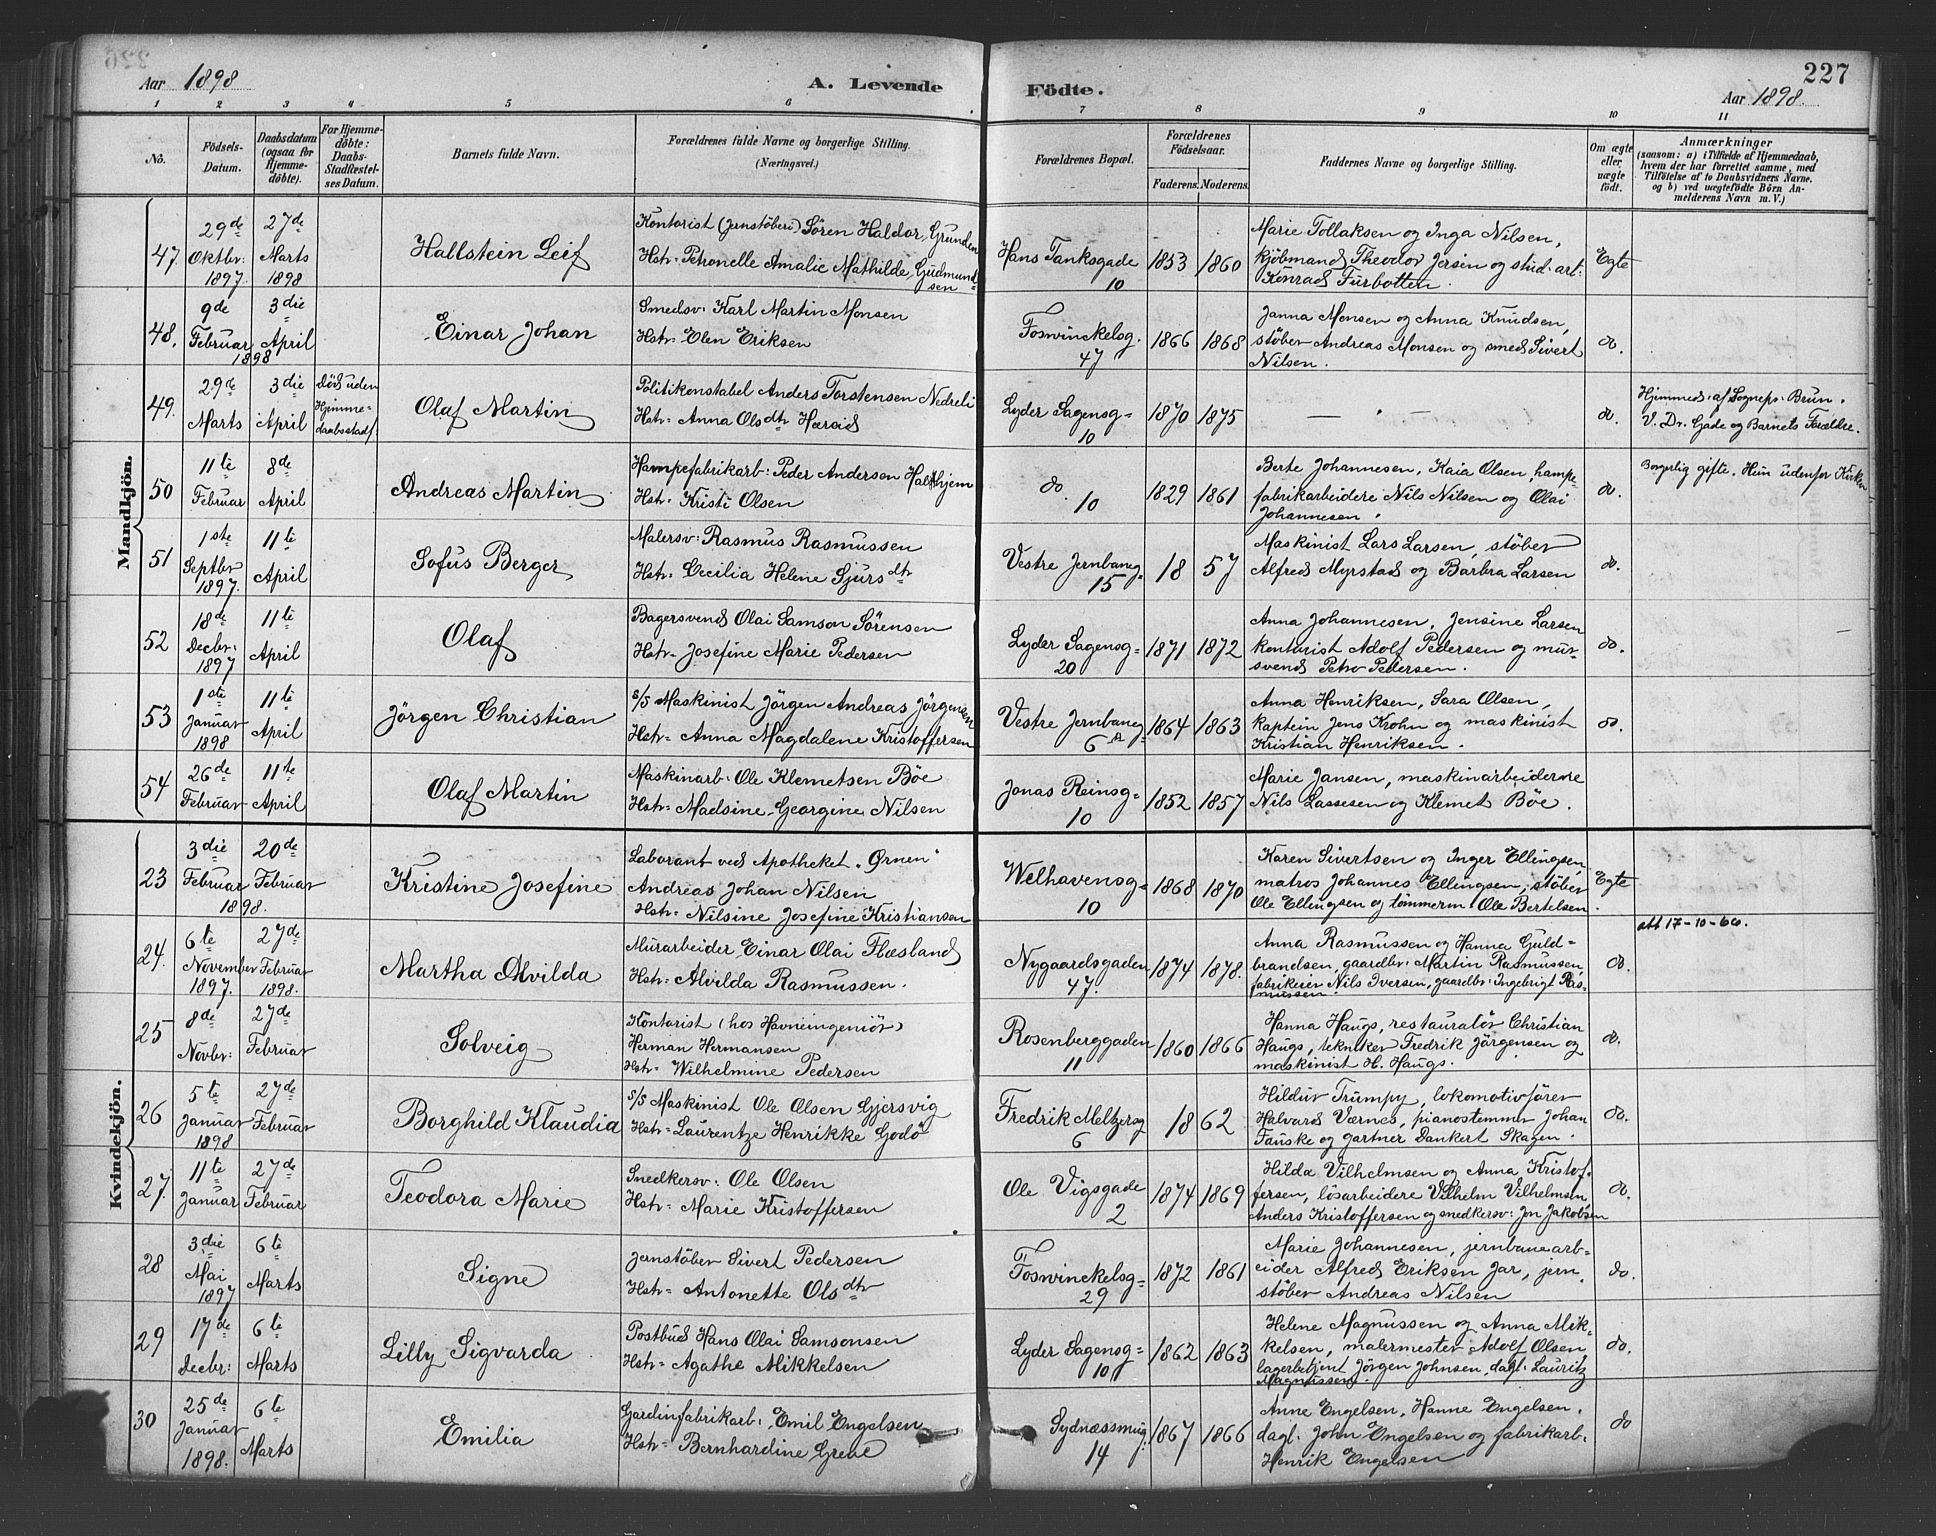 227
Aar 1898 A. Levende Födte. Aar 1898.
1 2 3 4 5 6 7 8 9 10 11
No.
Födsels-
Datum.
Daabsdatum
(ogsaa for
Hjemme-
döbte).
For Hjemme-
döbte:
Daabs-
Stadfæstel-
ses Datum.
Barnets fulde Navn.
Forældrenes fulde Navne og borgerlige Stilling.
(Næringsvei.)
Forældrenes Bopæl.
Forældrenes
Födselsaar.
Faderens. Moderens.
Faddernes Navne og borgerlige Stilling.
Om ægte
eller
uægte
födt.
Anmærkninger
(saasom: a) i Tilfælde af Hjemmedaab,
hvem der har forrettet samme, med
Tilföielse af to Daabsvidners Navne.
og b) ved uægtefödte Börn An-
melderens Navn m. V.)
Mandkjön.
47.
29de
Oktbr.
1897
27de
Marts
1898
Hallstein Leif
Kontorist (Jernstöberi) Sören Haldor Grunden
Hstr. Petronelle Amalie Mathilde Gudmund-
sen
Hans Tanksgade
10
1853 1860
Marie Tollaksen og Inga Nilsen,
kjöbmand Theodor Jersin og stud. art.
Konrad Furbotten.
Egte
48.
9de
Februar
3die
April
1898
Einar Johan
Smedsv. Karl Martin Monsen
Hstr. Elen Eriksen
Foswinckelsg.
47
1866 1868
Janna Monsen og Anna Knudsen,
stöber Andreas Monsen og smed Sivert
Nilsen.
do.
49.
29de
Marts
3die
April
Död uden
Hjemme-
daabsstadf.
Olaf Martin
Politikonstabel Anders Torstensen Nedreli
Hstr. Anna Olsdtr Hæreid
Lyder Sagensg.
10
1870 1875
— " —
do.
Hjemmed. af Sognepr. Brun.
V. Dr. Gade og Barnets Forældre.
50
11te
Februar
8de
April
Andreas Martin
Hampefabrikarb: Peder Andersen Halthjem
Hstr. Kristi Olsen
do.
10
1829 1861
Berte Johannesen, Kaia Olsen, hampe-
fabrikarbeidere Nils Nilsen og Olai
Johannesen.
do.
Borgerlig gifte. Hun udenfor Kirken
51
1ste
Septbr
1897.
11te
April
Sofus Berger
Malersv: Rasmus Rasmussen
Hstr. Cecilia Helene Sjursdtr
Vestre Jernbaneg.
15
18 57
Maskinist Lars Larsen, stöber
Alfred Myrstad og Barbra Larsen
do.
52
18de
Decbr.
1897
11te
April
Olaf
Bagersvend Olai Samson Sörensen
Hstr. Josefine Marie Pedersen
Lyder Sagensg.
20
1871 1872
Anna Johannesen, Jensine Larsen
kontorist Adolf Pedersen og mur-
svend Petro Pedersen.
do.
53
1ste
Januar
1898
11te
April
Jörgen Christian
s/s Maskinist Jörgen Andreas Jörgensen
Hstr. Anna Magdalene Kristoffersen
Vestre Jernbaneg.
6 a
1864 1863
Anna Henriksen, Sara Olsen,
kaptein Jens Krohn og maskinist
Kristian Henriksen.
do.
54
26de
Februar
11te
April
Olaf Martin
Maskinarb. Ole Klemetsen Böe
Hstr. Madsine Georgine Nilsen
Jonas Reinsg.
10
1852 1857
Marie Jansen, maskinarbeiderne
Nils Lassesen og Klemet Böe.
Kvindekjön.
23
3die
Februar
20de
Februar
1898.
Kristine Josefine
Laborant ved Apotheket "Ørnen"
Andreas Johan Nilsen
Hstr. Nilsine Josefine Kristiansen
Welhavensg.
10
1868 1870
Karen Sivertsen og Inger Ellingsen,
matros Johannes Ellingsen, stöber
Ole Ellingsen og tömmerm. Ole Bertelsen.
Egte
att 17-10-60.
24.
6te
November
1897.
27de
Februar
1898.
Martha Alvilda
Murarbeider Einar Olai Flæsland
Hstr. Alvilda Rasmussen.
Nygaardsgaden
47.
1874 1878.
Anna Rasmussen og Hanna Guld-
brandsen, gaardbr. Martin Rasmussen,
fabrikeier Nils Iversen, gaardbr. Ingebrigt Ras-
mussen.
do.
25
8de
Novbr:
27de
Februar
Solveig
Kontorist (hos Havneingeniör)
Herman Hermansen
Hstr. Wilhelmine Pedersen
Rosenberggaden
11
1860 1866
Hanna Haugs, restauratör Christian
Haugs, tekniker Fredrik Jörgensen og
maskinist H. Haugs.
do.
26
5te
Januar
1898
27de
Februar
Borghild Klaudia
s/s Maskinist Ole Olsen Gjersvig
Hstr. Laurentze Henrikke Godö
Fredrik Meltzersg
6
18 62
Hildur Trumpy, lokomotivförer
Halvard Værnes, pianostemmer Johan
Fauske og gartner Dankert Skagen.
do.
27.
11te
Januar
27de
Februar
Teodora Marie
Snedkersv: Ole Olsen
Hstr. Marie Kristoffersen
Ole Vigsgade
2
1874 1869
Hilda Vilhelmsen og Anna Kristof-
fersen, lösarbeidere Vilhelm Vilhelmsen
Anders Kristoffersen og snedkersv: Jon Jakobsen
do.
28
3die
Mai
1897
6te
Marts
Signe
Jernstöber Sivert Pedersen
Hstr. Antonette Olsdtr
Foswinckelsg.
29
1872 1861
Marie Johannesen, jernbanearb-
eider Alfred Eriksen Jar, jern-
stöber Andreas Nilsen
do.
29
17de
Decbr:
6te
Marts
Lilly Sigvarda
Postbud Hans Olai Samsonsen
Hstr. Agathe Mikkelsen
Lyder Sagensg.
10
1862 1863
Helene Magnussen og Anna Mik-
kelsen, malermester Adolf Olsen,
lagerbetjent Jörgen Johnsen, dagl. Lauritz
Magnussen.
do.
30
25de
Januar
1898.
6te
Marts
Emilia
Gardinfabrikarb: Emil Engelsen
Hstr. Bernhardine Greve
Sydnæssmug.
14
1867 1866
Anne Engelsen, Hanne Engelsen,
dagl. John Engelsen og fabrikarb.
Henrik Engelsen
do